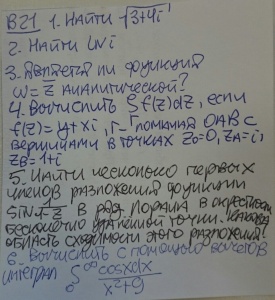 В21 1. Найти √3+4i
2. Найти Lni
3. Является ли функция
ω=z̅ аналитической?
4. Вычислить ∫f(z)dz, если
f(z)=y+xi, Г-ломаная ОАВ с
вершинами в точках z₀=0, z_A=i,
z_B=1+i
5. Найти несколько первых
членов разложения функции
sin 1/(1-z) в ряд Лорана в окрестности
бесконечно удалённой точки.
область сходимости этого разложения?
6. Вычислить с помощью вычетов
интеграл ∫₀^∞ cosxdx/(x²+9)